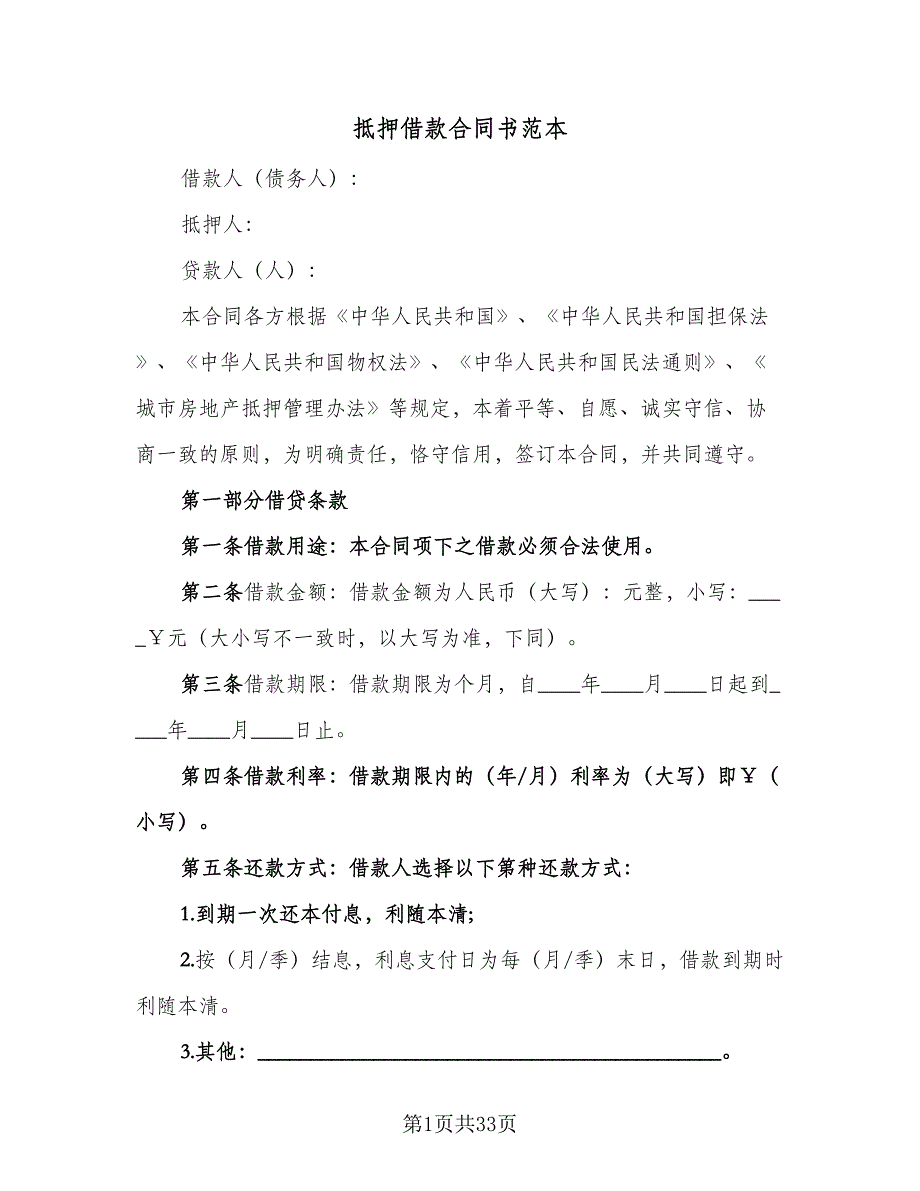 抵押借款合同书范本
借款人（债务人）：
抵押人：
贷款人（人）：
本合同各方根据《中华人民共和国》、《中华人民共和国担保法
》、《中华人民共和国物权法》、《中华人民共和国民法通则》、《
城市房地产抵押管理办法》等规定，本着平等、自愿、诚实守信、协
商一致的原则，为明确责任，恪守信用，签订本合同，并共同遵守。
第一部分借贷条款
第一条借款用途：本合同项下之借款必须合法使用。
第二条借款金额：借款金额为人民币（大写）：元整，小写：___
_￥元（大小写不一致时，以大写为准，下同）。
第三条借款期限：借款期限为个月，自____年____月____日起到_
___年____月____日止。
第四条借款利率：借款期限内的（年/月）利率为（大写）即￥（
小写）。
第五条还款方式：借款人选择以下第种还款方式：
1.到期一次还本付息，利随本清;
2.按（月/季）结息，利息支付日为每（月/季）末日，借款到期时
利随本清。
3.其他：____________________________________________。
第1页共33页